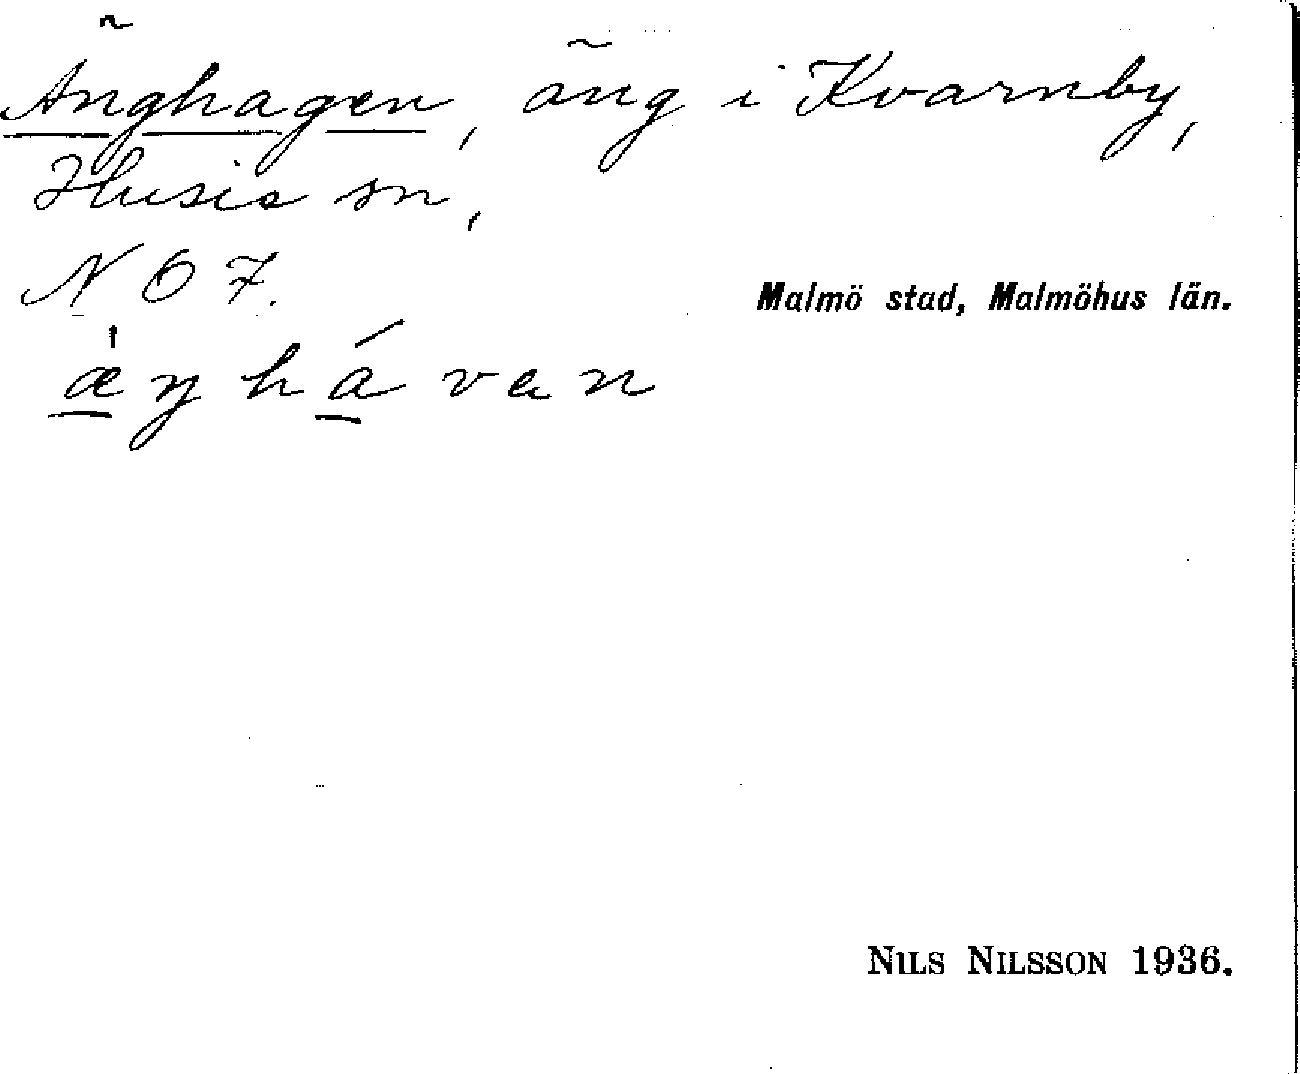 Änghagen, äng i Kvarnby,
Husie sn,
N 67.
Malmö stad, Malmöhus län.
æ̀ŋhávan
NILS NILSSON 1936.